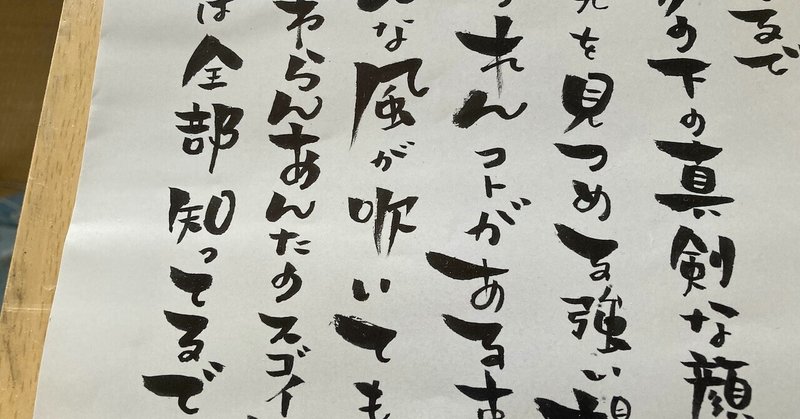 るで
の下の真剣な顔
を見つめる強い
れんコトがある
な風が吹いても
わらんあんたのスゴイ
は全部知ってるで